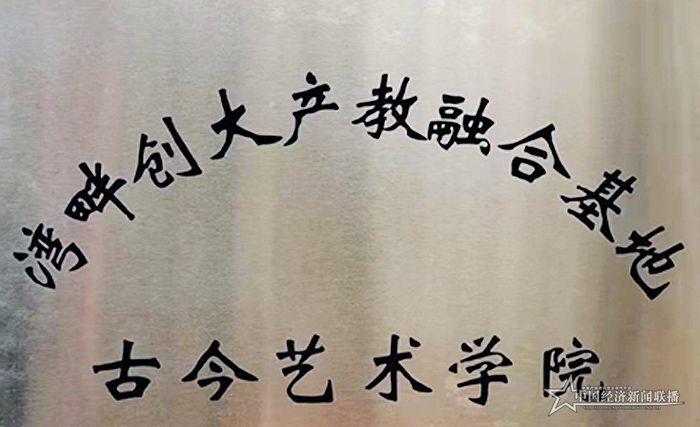 湾畔创大产教融合基地
古今艺术学院
中国经济新闻联播